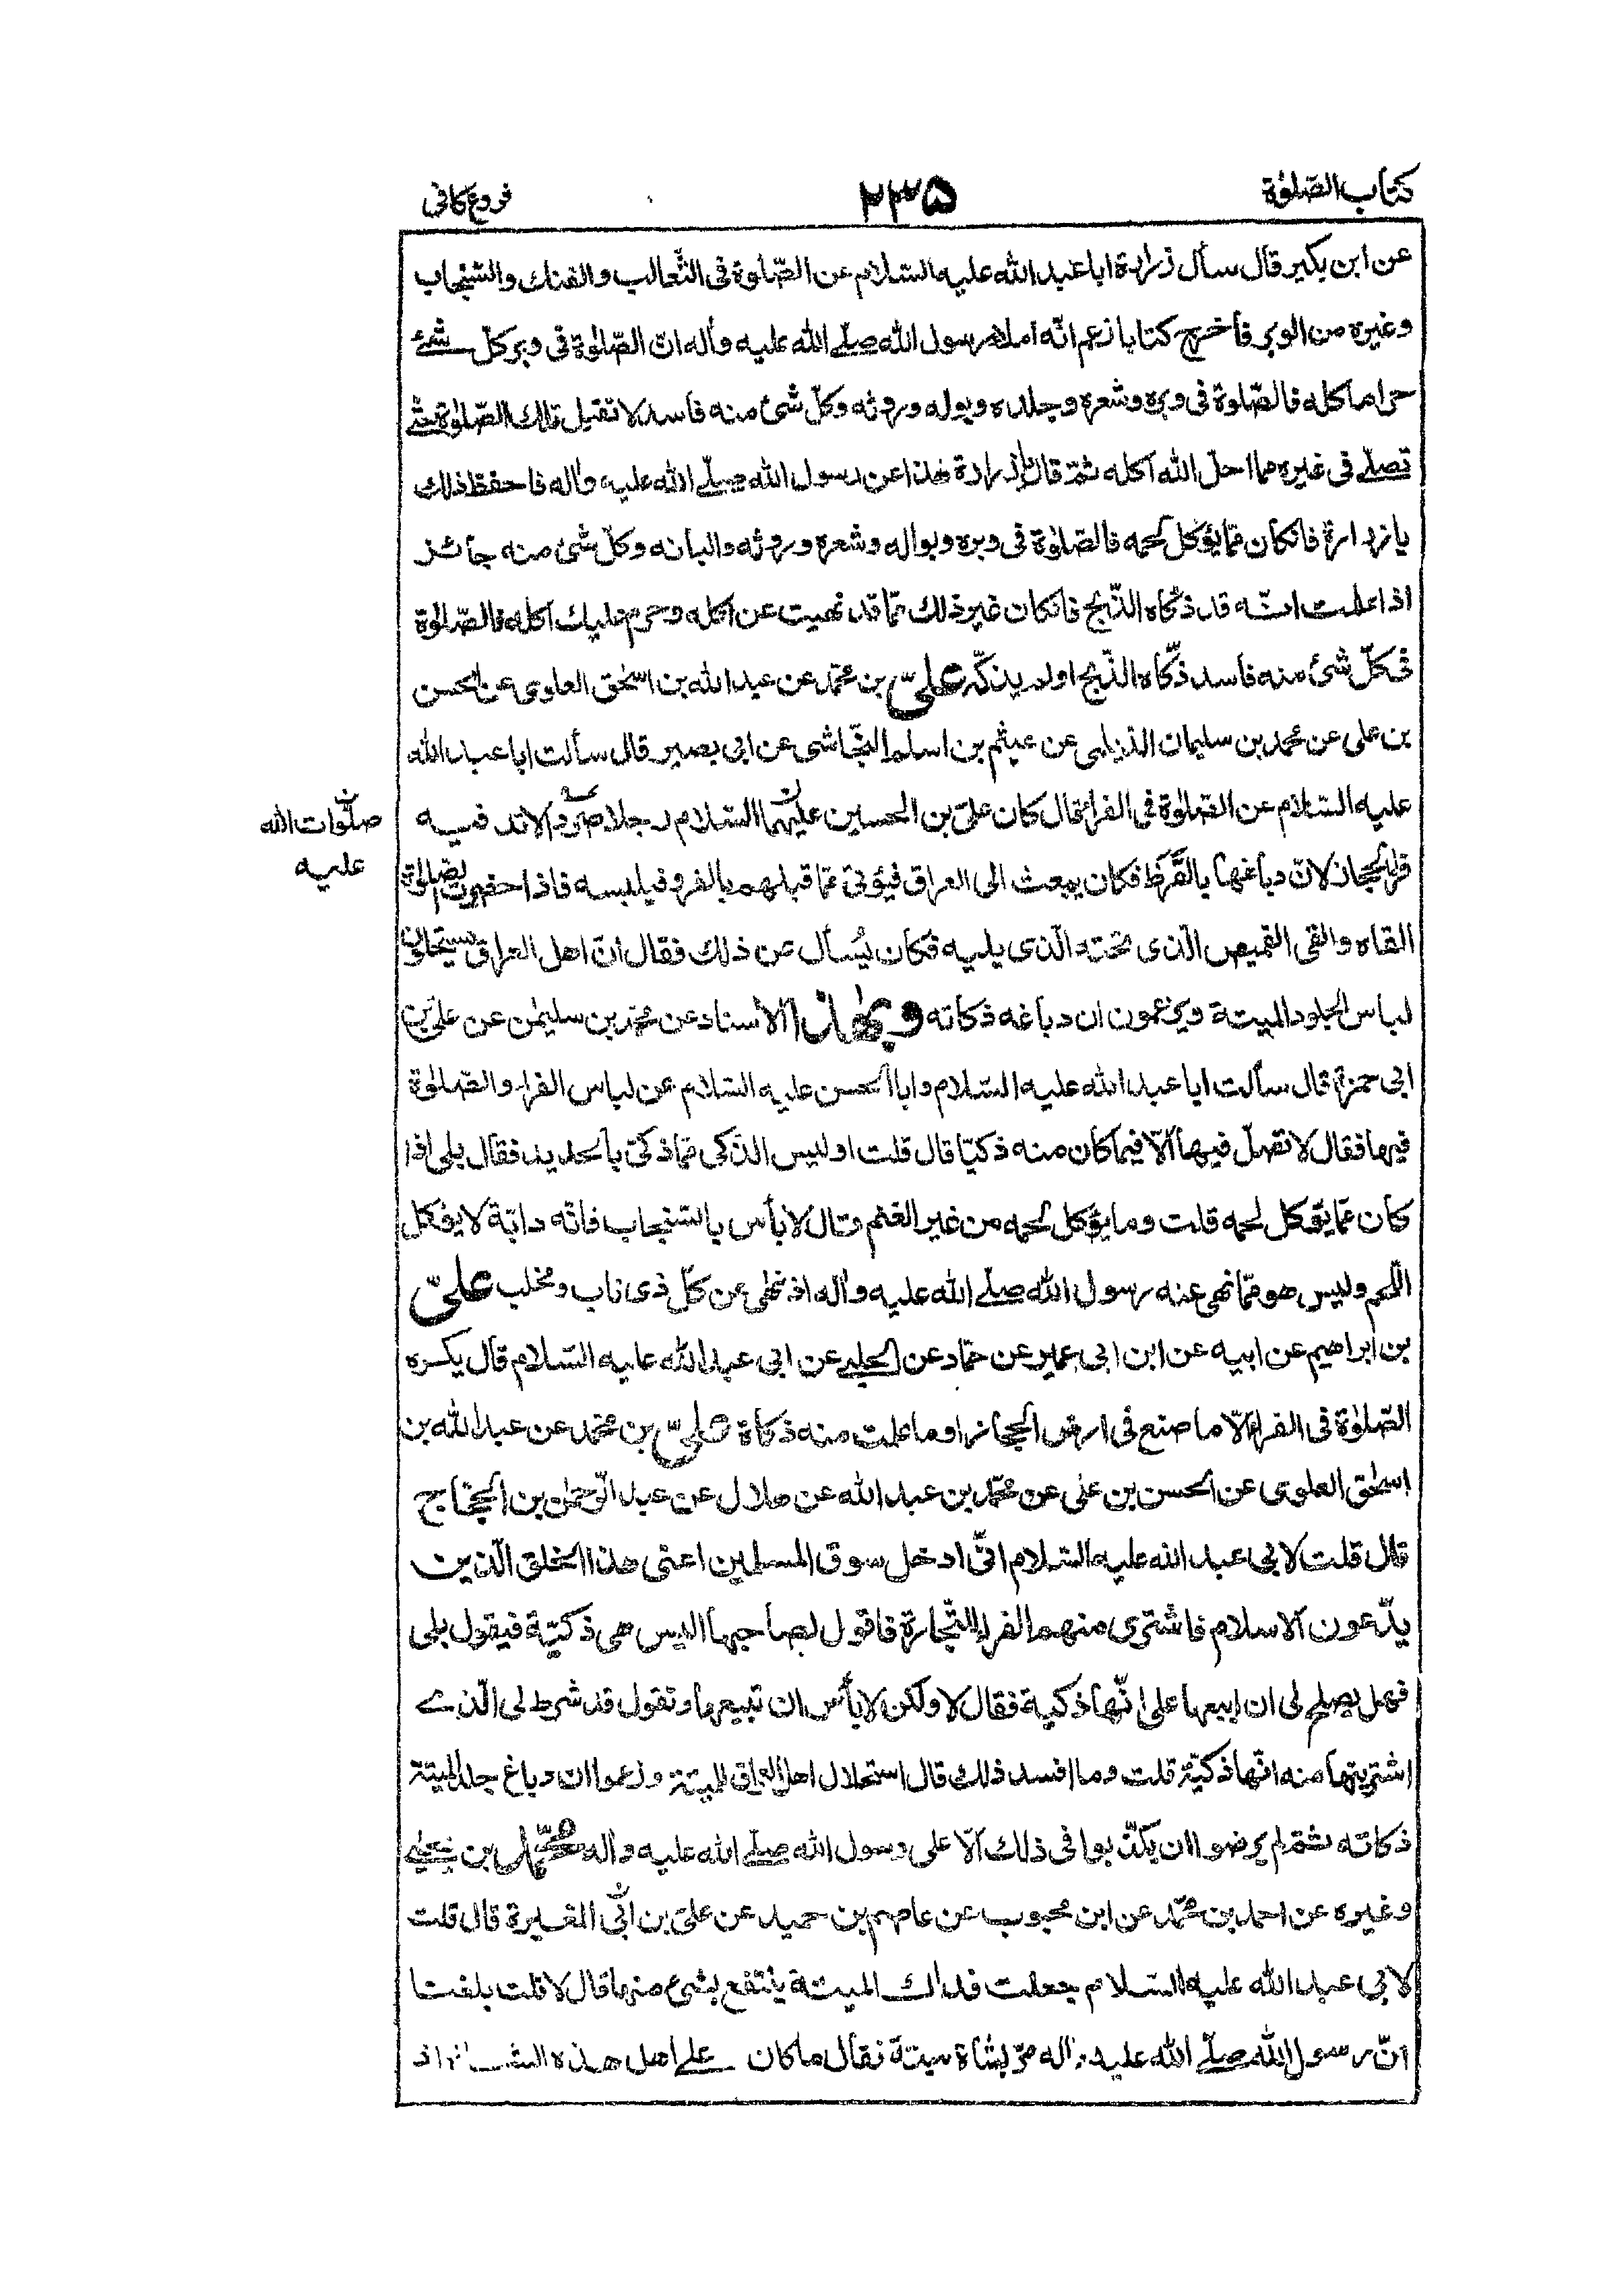 كتاب الصّلوٰة ۲۳۵ فروع كافى
عن ابن بكير قال سأل زرارة ابا عبد الله عليه السّلام عن الصّلوة فى الثّعالب والفنك والسّنجاب
وغيره من الوبر فأخرج كتابا زعم انّه املاء رسول الله صلّے الله عليه وأله انّ الصّلوٰة فى وبر كلّ شئے
حرام اكله فالصّلوة فى وبره وشعره وجلده وبوله وروثه وكلّ شئ منه فاسد لا تقبل تلك الصّلوٰة حتّے
تصلّے فى غيره مما احلّ الله اكله ثمّ قال يا زرارة هذا عن رسول الله صلّے الله عليه وأله فاحفظ ذلك
يا زرارة فانكان ممّا يؤكل لحمه فالصّلوٰة فى وبره وبواله وشعره وروثه والبانه وكلّ شئ منه جائز
اذا علمت انّه قد ذكّاه الذّبح فانكان غير ذلك ممّا قد نهيت عن اكله وحرم عليك اكله فالصّلوٰة
فى كلّ شئ منه فاسد ذكّاه الذّبح او لم يذكّه علىّ بن محمّد عن عبد الله بن اسحٰق العلوى عن الحسن
بن على عن محمد بن سليمان الديلمى عن عيثم بن اسلم النجّاشى عن ابى بصير قال سألت ابا عبد الله
عليه السّلام عن الصّلوٰة فى الفراء فقال كان علىّ بن الحسين عليهما السّلام رجلا صردا لا تدفيه
صلوات الله
عليه
فراء الحجاز لانّ دباغها بالقَرَظ فكان يبعث الى العراق فيؤتى ممّا قبلهم بالفرو فيلبسه فاذا حضرت الصّلوٰة
القاه والقى القميص الّذى تحته الّذى يليه فكان يُسأل عن ذلك فقال انّ اهل العراق يستحلّون
لباس الجلود الميتة ويزعمون ان دباغه ذكاته وبهذا الاسناد عن محمّد بن سليمٰن عن علىّ بن
ابى حمزة قال سألت ابا عبد الله عليه السّلام وابا الحسن عليه السّلام عن لباس الفراء والصّلوٰة
فيها فقال لا تصلّ فيها الّا فيما كان منه ذكيّا قال قلت اوليس الذّكى ممّا ذكّى بالحديد فقال بلى اذا
كان ممّا يؤكل لحمه قلت وما يؤكل لحمه من غير الغنم وقال لا بأس بالسّنجاب فانّه دابّة لا يؤكل
اللّحم وليس هو ممّا نهى عنه رسول الله صلّے الله عليه وأله اذ نهى عن كلّ ذى ناب ومخلب علىّ
بن ابراهيم عن ابيه عن ابن ابى عمير عن حمّاد عن الحلبے عن ابى عبد الله عليه السّلام قال يكره
الصّلوٰة فى الفراء الّا ما صنع فى ارض الحجاز او ما علمت منه ذكاة علىّ بن محمّد عن عبد الله بن
اسحٰق العلوى عن الحسن بن على عن محمّد بن عبد الله عن هلال عن عبد الرّحمٰن بن الحجّاج
قال قلت لابى عبد الله عليه السّلام انّى ادخل سوق المسلمين اعنى هذا الخلق الّذين
يدّعون الاسلام فاشترى منهم الفراء للتّجارة فاقول لصاحبها اليس هى ذكيّة فيقول بلى
فهل يصلح لى ان ابيعها على انّها ذكية فقال لا ولكن لا بأس ان تبيعها وتقول قد شرط لى الّذے
اشتريتها منه انّها ذكيّة قلت وما افسد ذلك قال استحلال اهل العراق للميتة وزعموا ان دباغ جلد الميتة
ذكاته ثمّ لم يرضوا ان يكذّبوا فى ذلك الّا على رسول الله صلّے الله عليه وأله محمّد بن يحيے
وغيره عن احمد بن محمّد عن ابن محبوب عن عاصم بن حميد عن علىّ بن أبى المغيرة قال قلت
لابى عبد الله عليه السّلام جعلت فداك الميتة ينتفع بشئ منها قال لا قلت بلغنا
انّ رسول الله صلّے الله عليه وأله مرّ بشاة ميتة فقال ما كان علے اهل هذه الشاة اذ